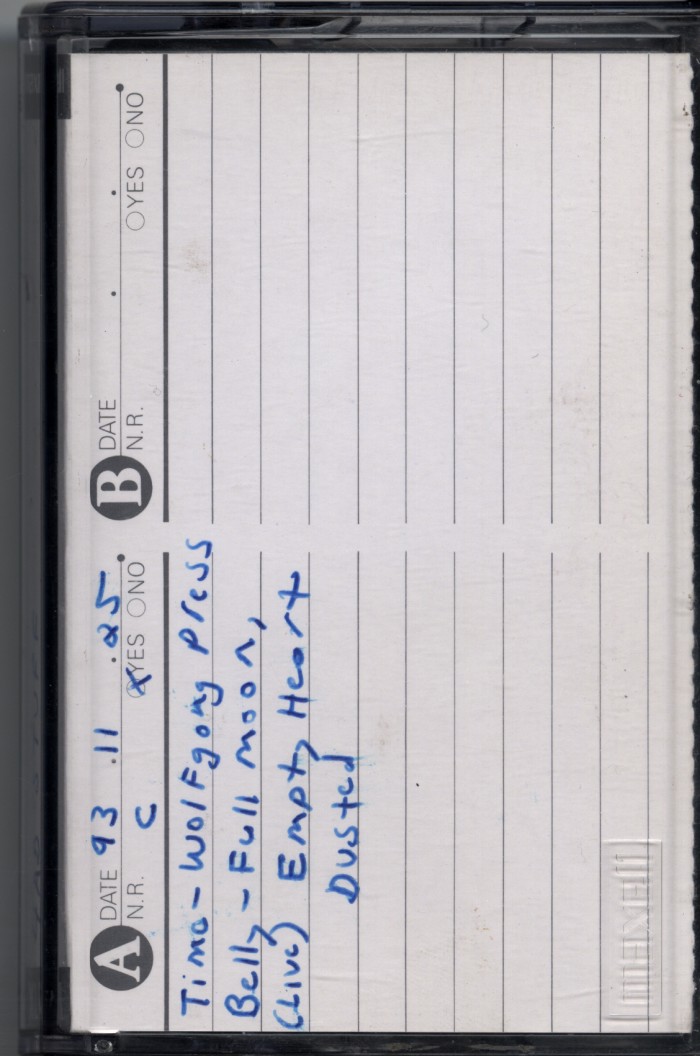 A DATE 93 .11 .25
N.R. C YES NO
Time - Wolfgang Press
Belly - Full moon,
(Live) Empty Heart
Dusted
B DATE . .
N.R. YES NO
maxell